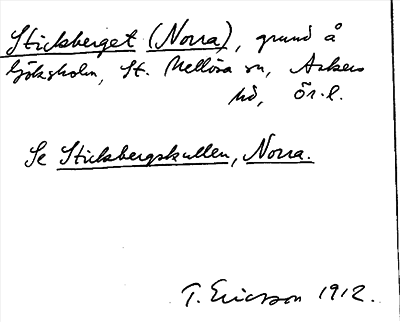 Sticksberget (Norra), grund å
Göksholm, St. Mellösa sn, Askers
hd, Ör. l.
Se Sticksbergskullen, Norra.
T. Ericsson 1912.